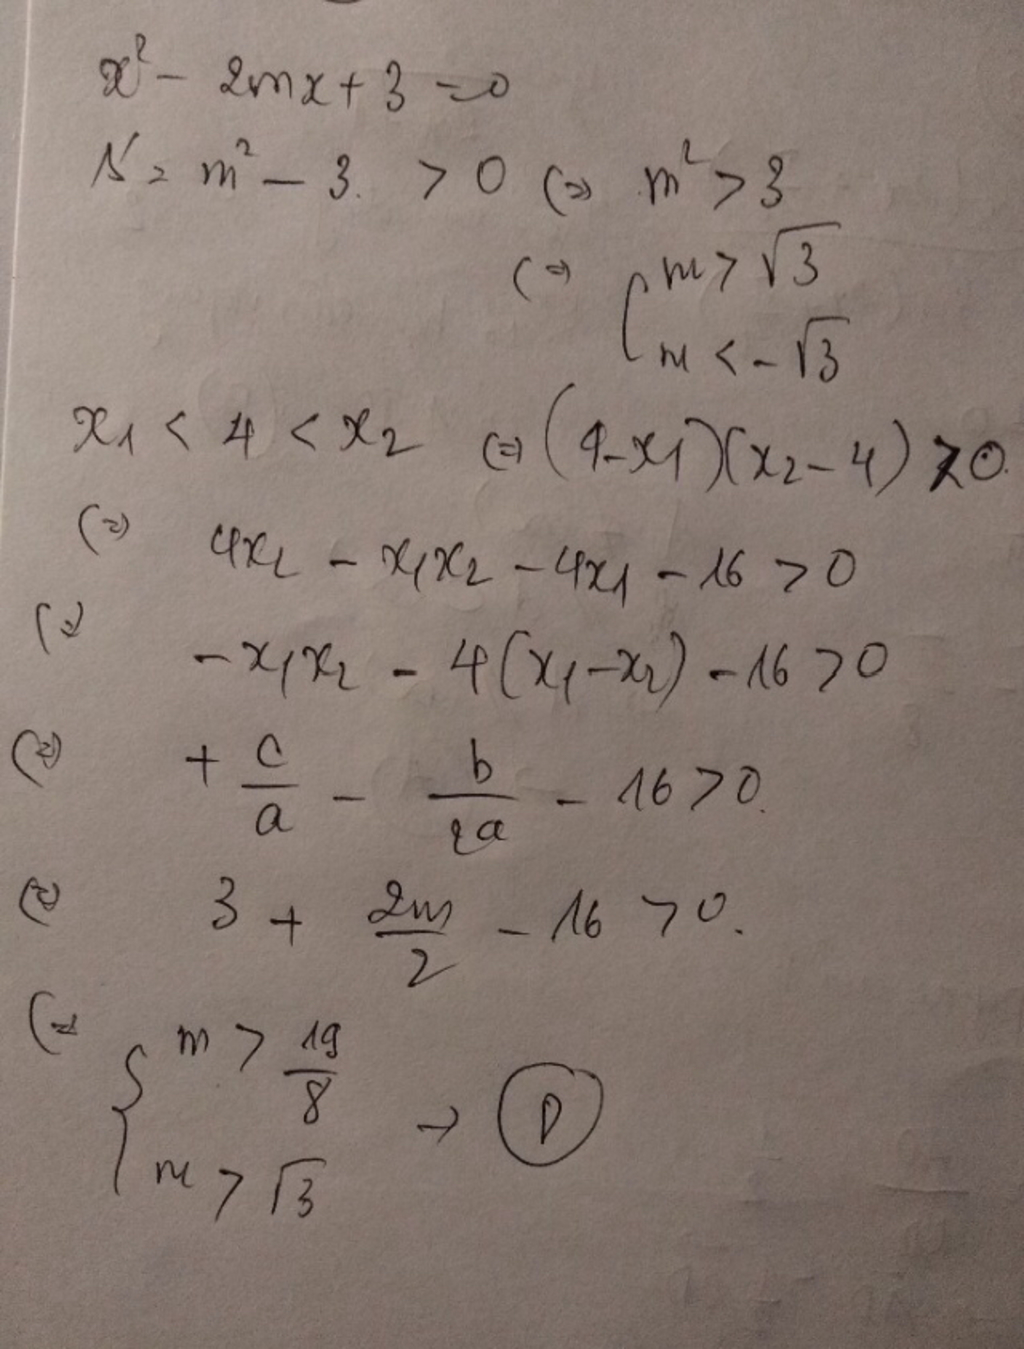 x² - 2mx + 3 = 0
Δ' = m² - 3 > 0 (=) m² > 3
(=) [ m > √3
m < -√3
x₁ < 4 < x₂ (=) (4-x₁)(x₂-4) > 0
(=) 4x₂ - x₁x₂ - 4x₁ - 16 > 0
(=) -x₁x₂ - 4(x₁-x₂) - 16 > 0
(=) + c/a - b/2a - 16 > 0.
(=) 3 + 2m/2 - 16 > 0.
(=) { m > 19/8
m > √3 → D